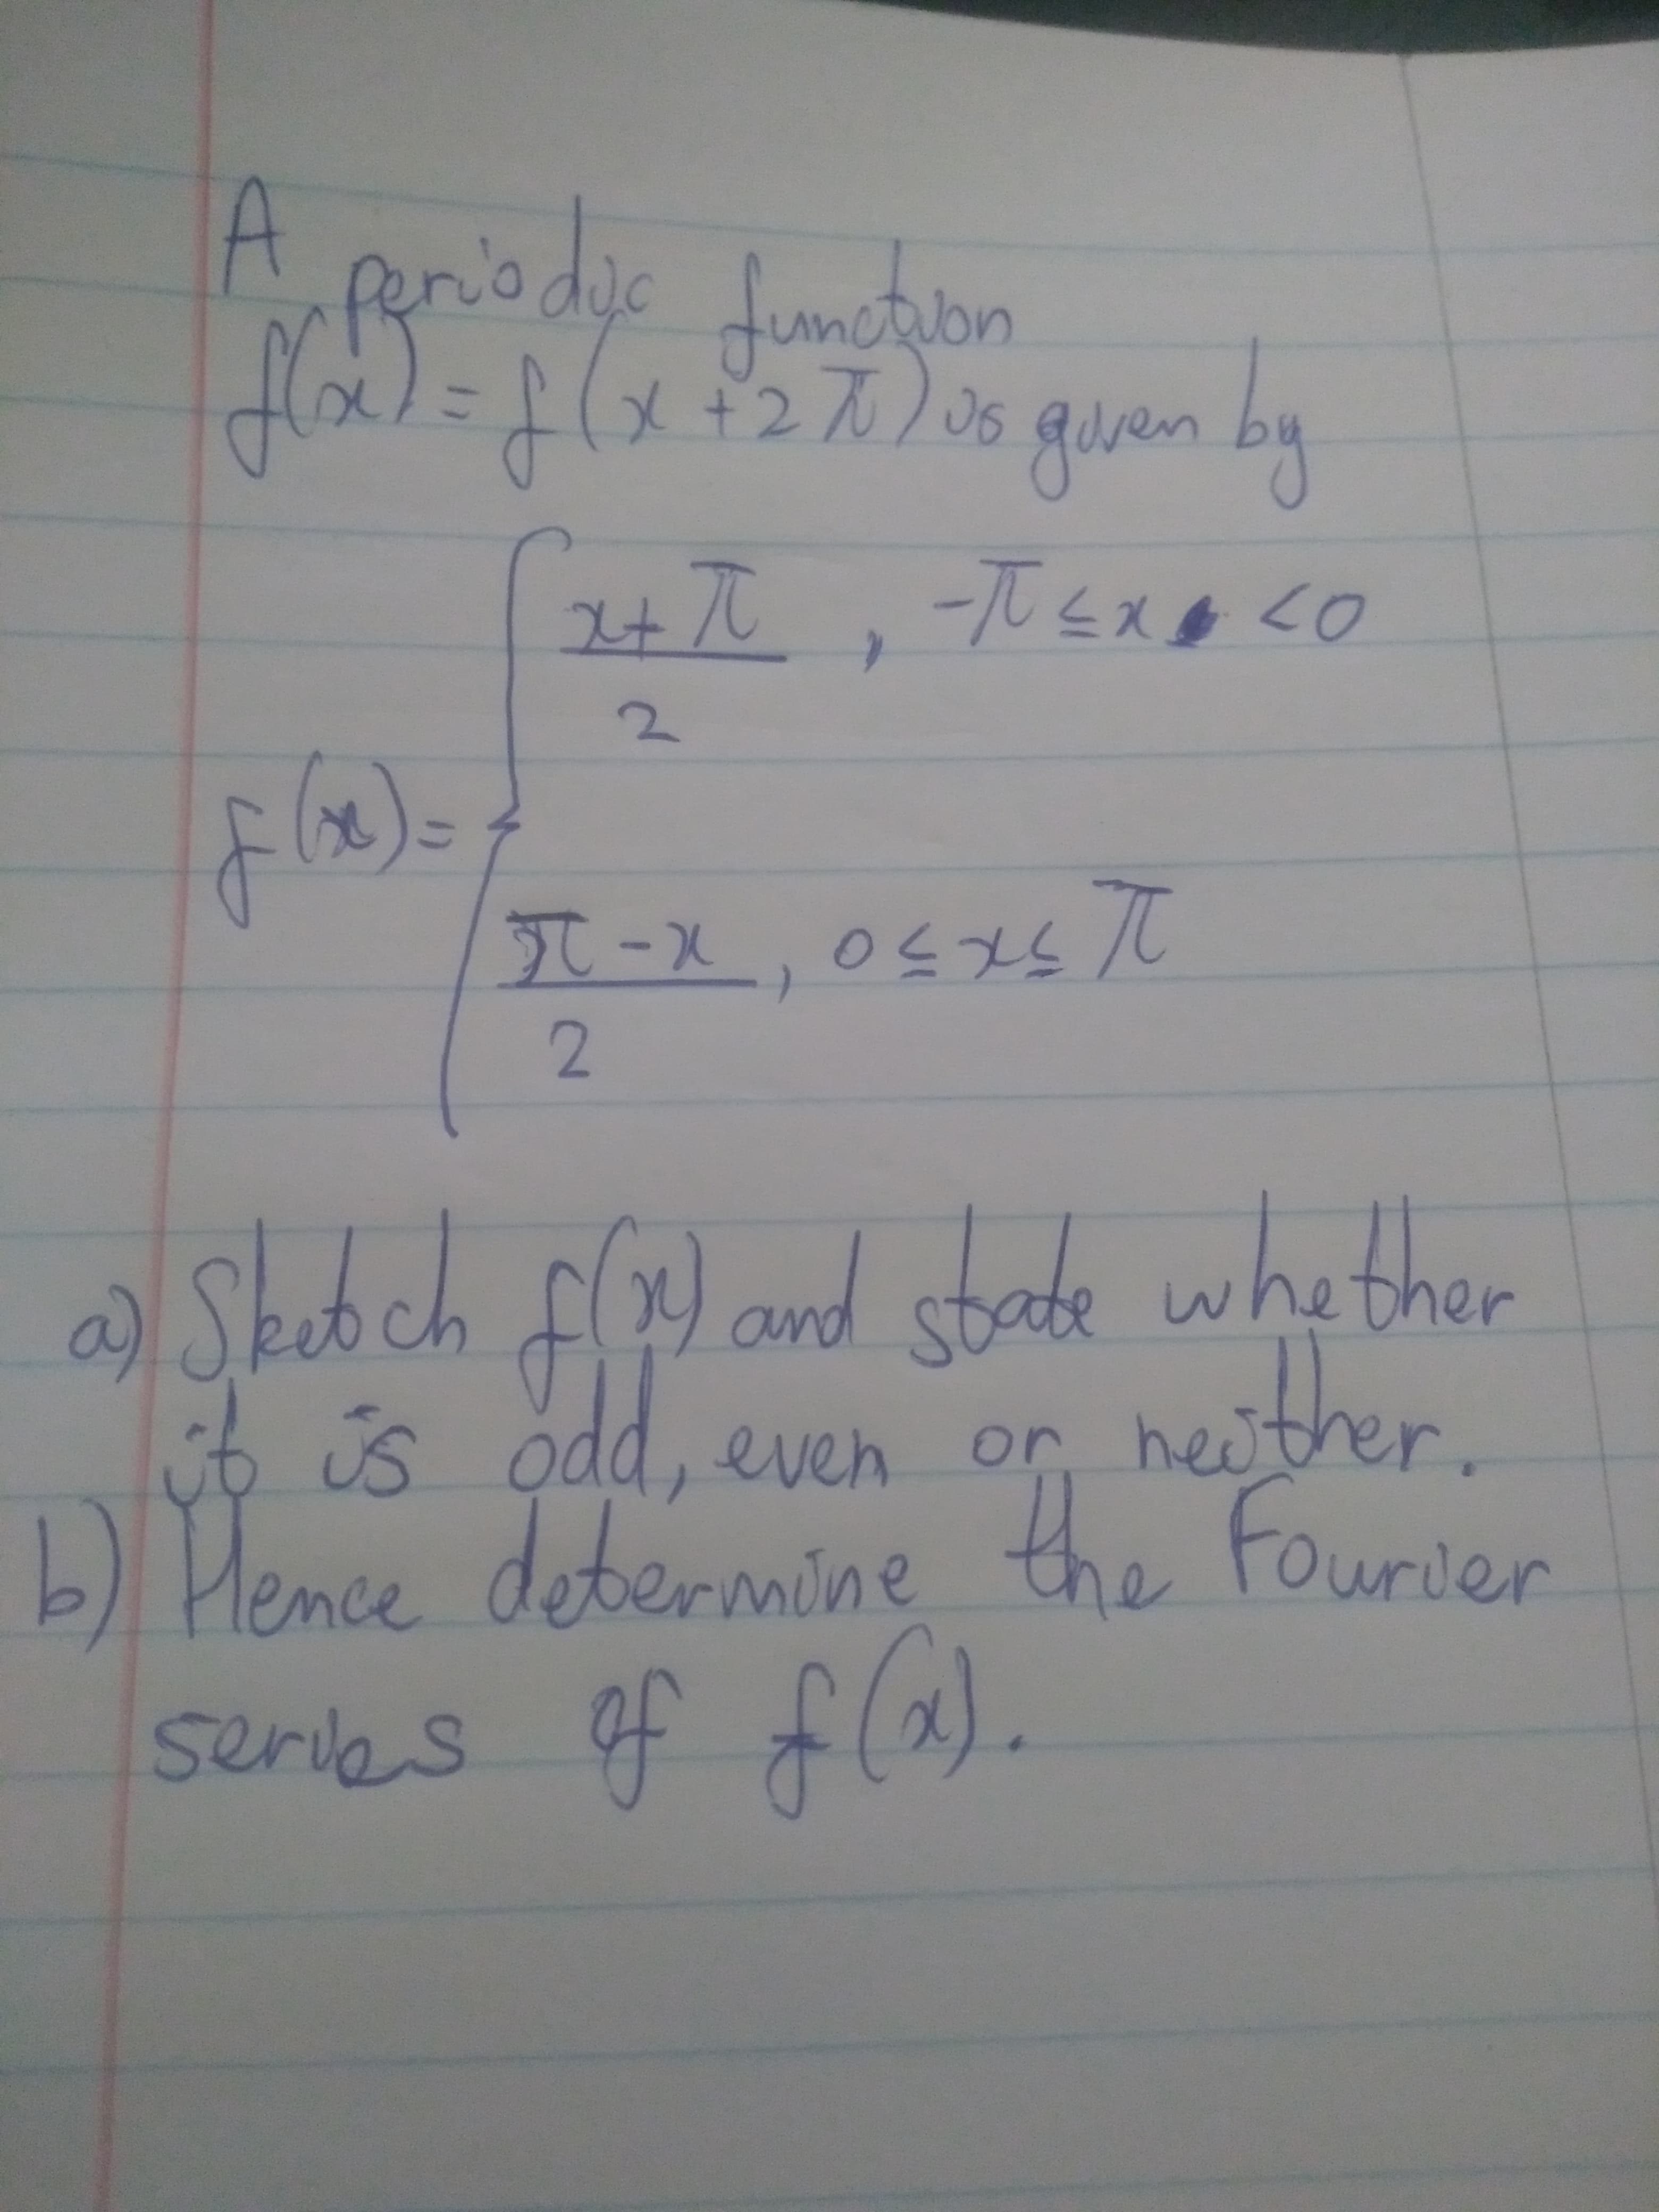 A periodic function
f(x) = f(x + 2π) is given by
f(x) = { x + π / 2 , -π ≤ x < 0
π - x / 2 , 0 ≤ x ≤ π
a) Sketch f(x) and state whether
it is odd, even or neither.
b) Hence determine the Fourier
series of f(x).